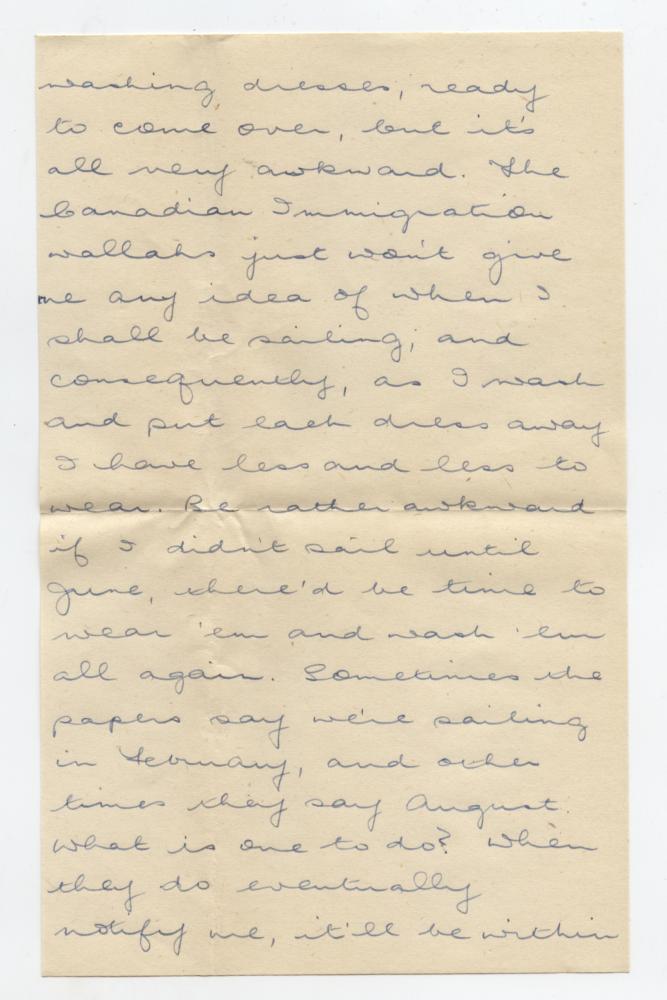 washing dresses, ready
to come over, but it's
all very awkward. The
Canadian Immigration
wallahs just won't give
me any idea of when I
shall be sailing, and
consequently, as I wash
and put each dress away
I have less and less to
wear. Be rather awkward
if I didn't sail until
June, there'd be time to
wear 'em and wash 'em
all again. Sometimes the
papers say we're sailing
in February, and other
times they say August.
What is one to do? When
they do eventually
notify me, it'll be within